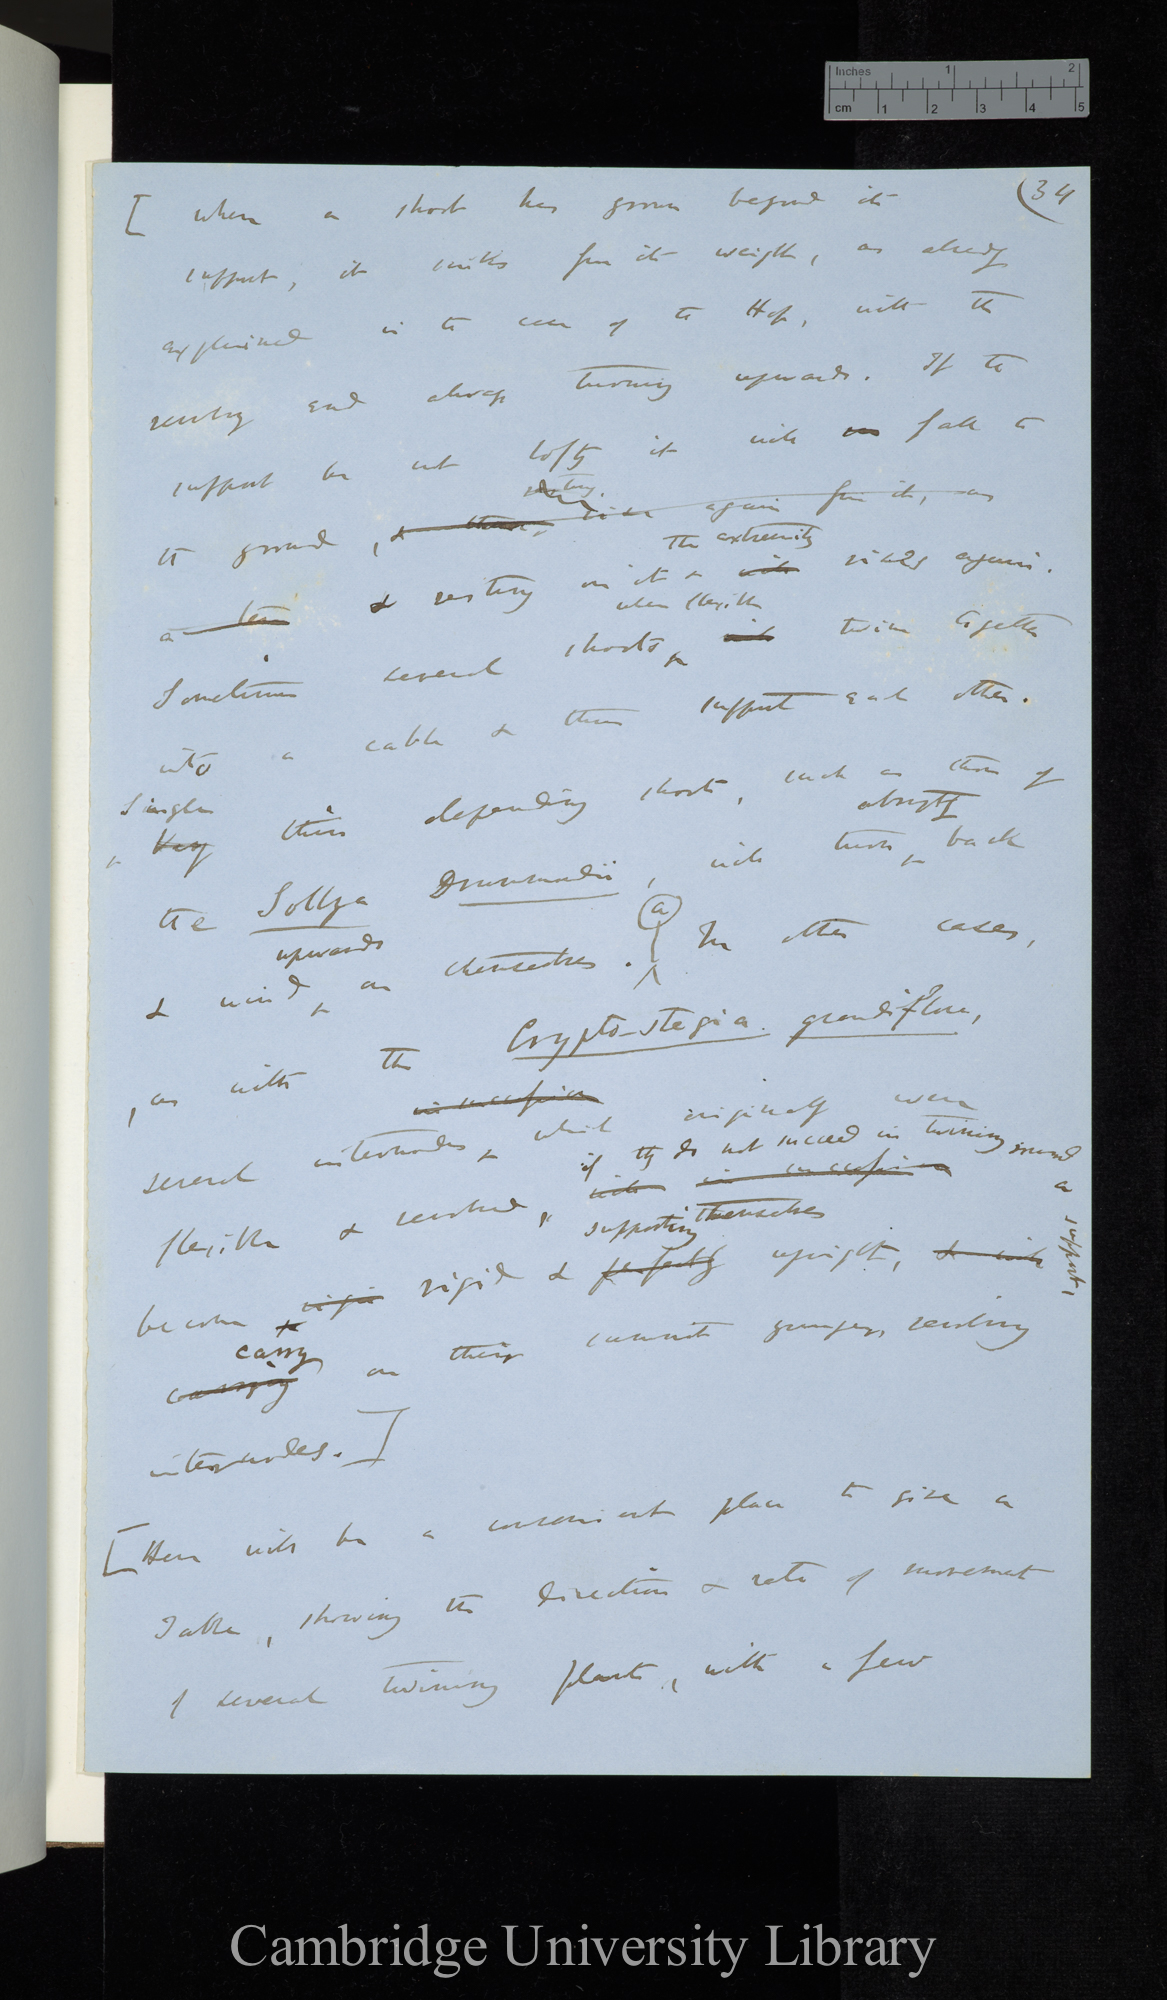 Inches 1 2
cm 1 2 3 4 5
(34
[ When a shoot has grown beyond its
support, it sinks from its weight, as already
explained in the case of the Hop, with the
revolving end always turning upwards. If the
support be not lofty it will fall to
resting.
the ground, & then, rise again from it, as
The extremity
a & resting on it & will rises again.
when flexible
Sometimes several shoots, will twine together
into a cable & thus support each other.
Single
Very thin depending shoots, such as those of
abruptly
the Sollya Drummondii, will turn back
upwards
& wind on themselves. (a) In other cases,
, as with the Crypto-stegia grandiflora,
in succession
several internodes, which originally were
if they do not succeed in twining round a support,
flexible & revolved, will in succession
supporting themselves
become rigid rigid & perfectly upright, & will
carry
carrying on their summits younger, revolving
internodes. ]
[ Here will be a convenient place to give a
Table, showing the direction & rate of movement
of several twining plants, with a few
Cambridge University Library